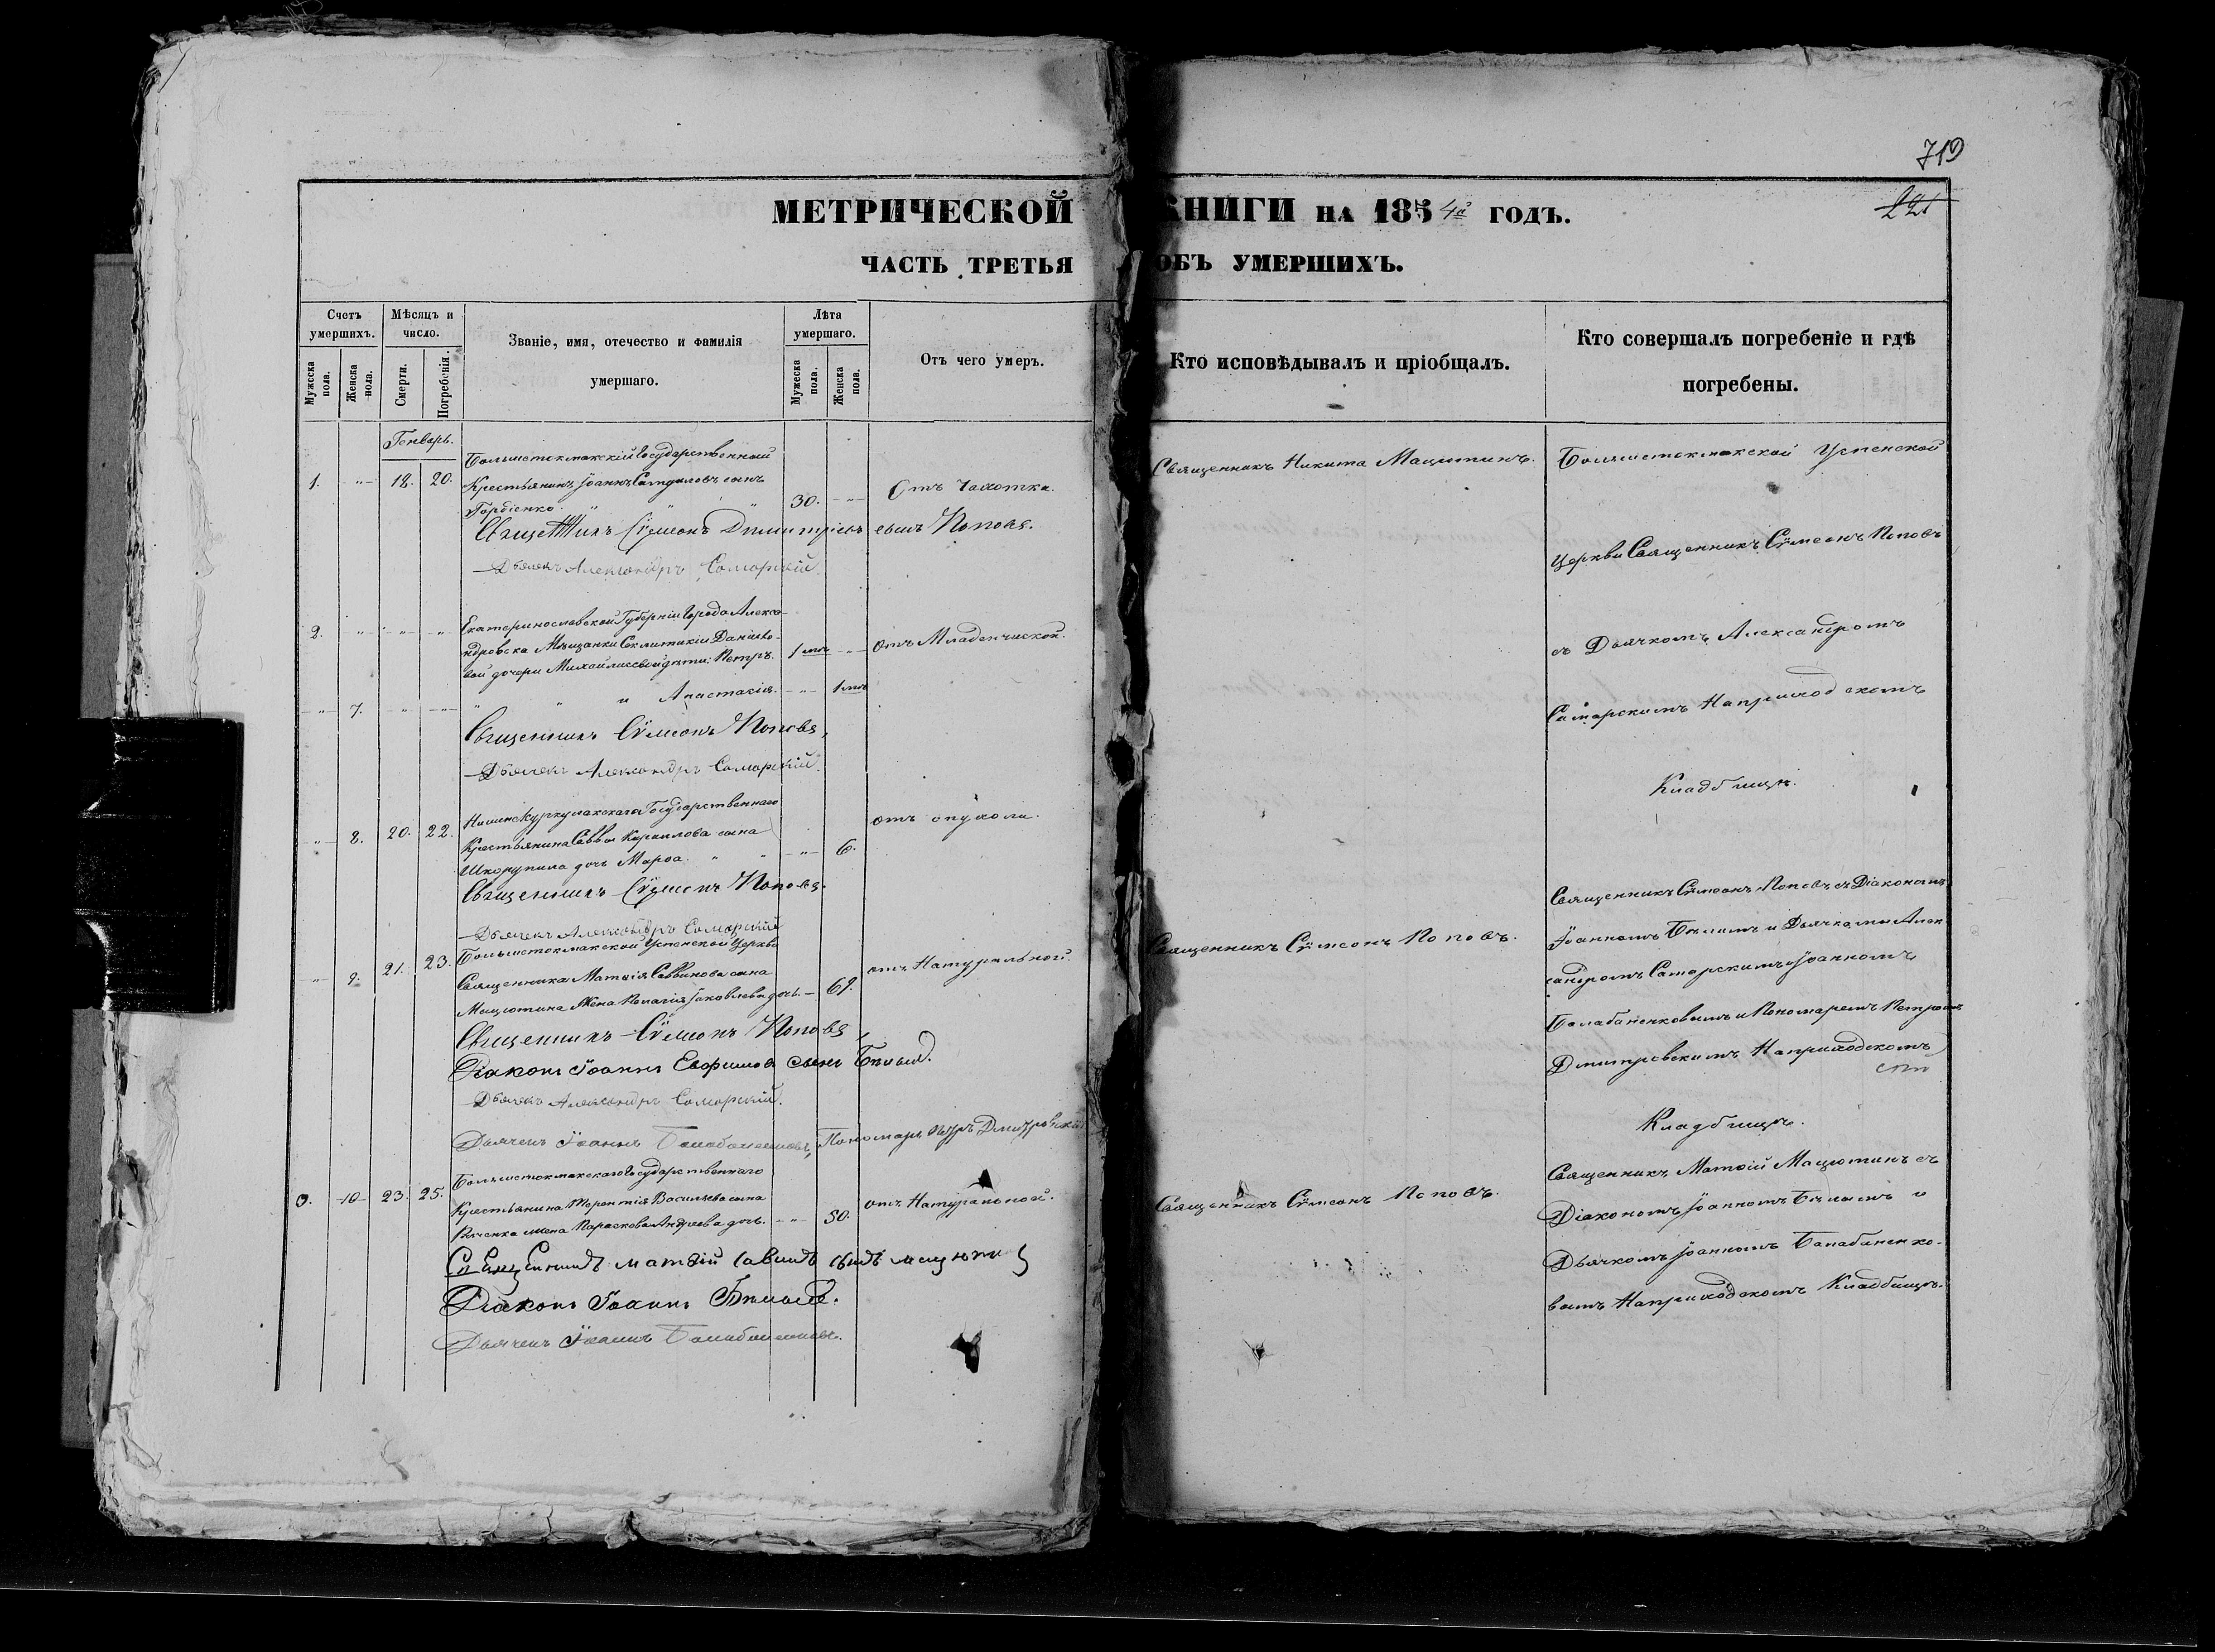 719
221
МЕТРИЧЕСКОЙ КНИГИ НА 1854й ГОДЪ.
ЧАСТЬ ТРЕТЬЯ ОБЪ УМЕРШИХЪ.
Счетъ умершихъ.
Мужеска пола.
Женска пола.
Мѣсяцъ и число.
Смерти.
Погребенія.
Званіе, имя, отечество и фамилія
умершаго.
Лѣта умершаго.
Мужеска пола.
Женска пола.
Отъ чего умеръ.
Кто исповѣдывалъ и пріобщалъ.
Кто совершалъ погребеніе и гдѣ
погребены.
Генварь.
Большетокмакскій Государственный
1. 18. 20. Крестьянинъ Іоаннъ сынъ
Гордіенко 30. Отъ Чахотки.
Священникъ Никита Мацютинъ.
Большетокмакской Успенской
Священникъ Сѵмеонъ Димитріевъ сынъ Поповъ.
Дьячекъ Александръ Самарскій.
Церкви Священникъ Сѵмеонъ Поповъ
Екатеринославской Губерніи Города Алекса-
2. ндровска Мѣщанки Секлитикіи Данило-
вой дочери дѣти: Петръ. 1 отъ Младенческой.
7. и Анастасія. 1
съ Дьячкомъ Александромъ
Самарскимъ На приходскомъ
Священникъ Сѵмеонъ Поповъ,
Дьячекъ Александръ Самарскій.
Кладбищѣ.
Государственнаго
8. 20. 22. Крестьянина Саввы Кирилова сына
дочь Марѳа. 6. отъ опухоли.
Священникъ Сѵмеонъ Поповъ.
Дьячекъ Александръ Самарскій
Священникъ Сѵмеонъ Поповъ съ Діакономъ
Большетокмакской Успенской Церкви
9. 21. 23. Священника Матѳія Саввинова сына
Мацютина Жена Пелагія Іаковлева дочь. 69. отъ Натуральной.
Священникъ Сѵмеонъ Поповъ.
Іоанномъ Бѣлымъ и Дьячками Алек-
сандромъ Самарскимъ и Іоанномъ
Балабаненковымъ и Пономаремъ Петромъ
Дмитревскимъ На приходскомъ
Кладбищѣ.
Священникъ Сѵмеонъ Поповъ,
Діаконъ Іоаннъ Евфимовъ сынъ Бѣлый.
Дьячекъ Александръ Самарскій.
Дьячекъ Іоаннъ Балабаненковъ, Пономарь Петръ Дмитревскій
Большетокмакскаго Государственнаго
0. 10 23. 25. Крестьянина Терентія Васильева сына
жена Параскева Андреева дочь. 50. отъ Натуральной.
Священникъ Сѵмеонъ Поповъ.
Священникъ Матѳій Мацютинъ съ
Діакономъ Іоанномъ Бѣлымъ и
Дьячкомъ Іоанномъ Балабаненко-
вымъ На приходскомъ Кладбищѣ.
Священникъ Матѳій Савинъ сынъ
Діаконъ Іоаннъ Бѣлый.
Дьячекъ Іоаннъ Балабаненковъ.